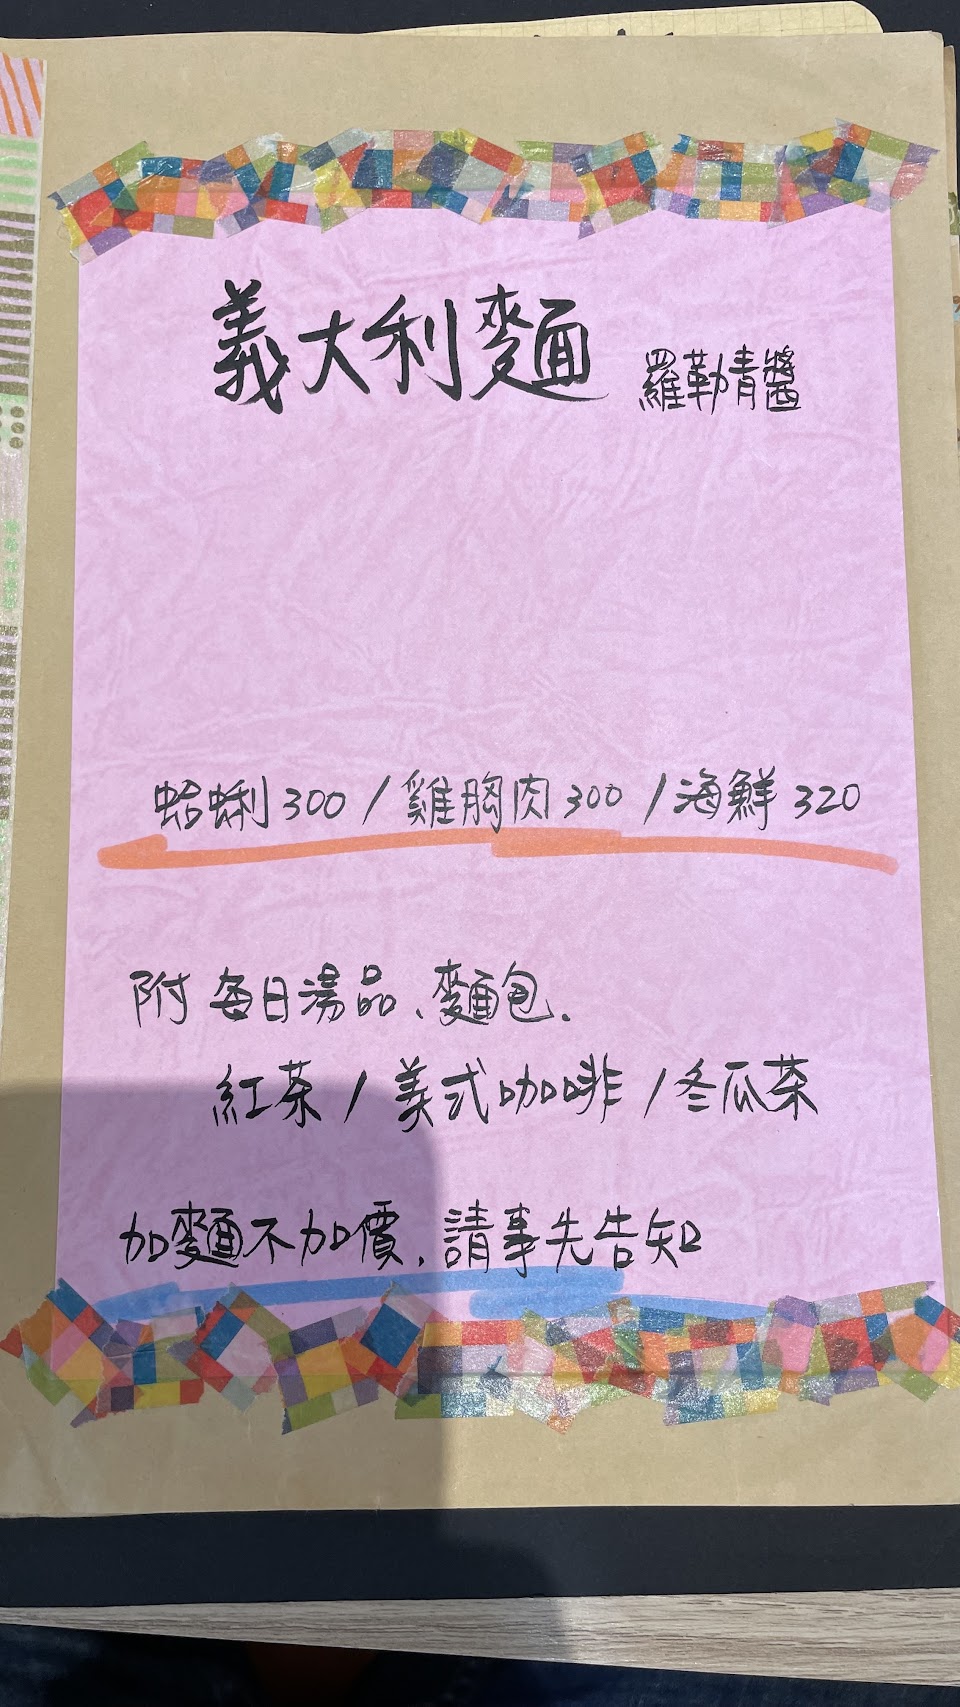 義大利麵 羅勒青醬
蛤蜊300/雞胸肉300/海鮮320
附每日湯品、麵包.
紅茶/美式咖啡/冬瓜茶
加麵不加價.請事先告知